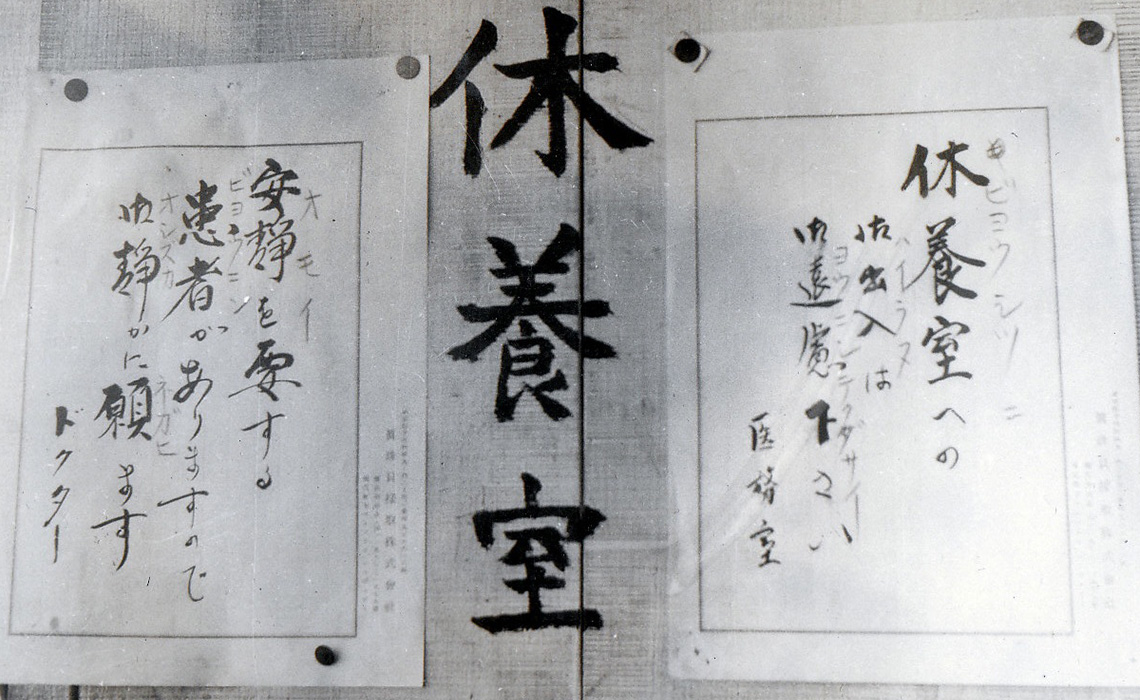 ビヨウシツニ
休養室への
ハイラヌ
御出入は
ヨウニシテクダサイ
御遠慮下さい
医務室
休養室
オモイ
安静を要する
ビヨウニン
患者がありますので
オシズカ ネガヒ
御静かに願ます
ドクター